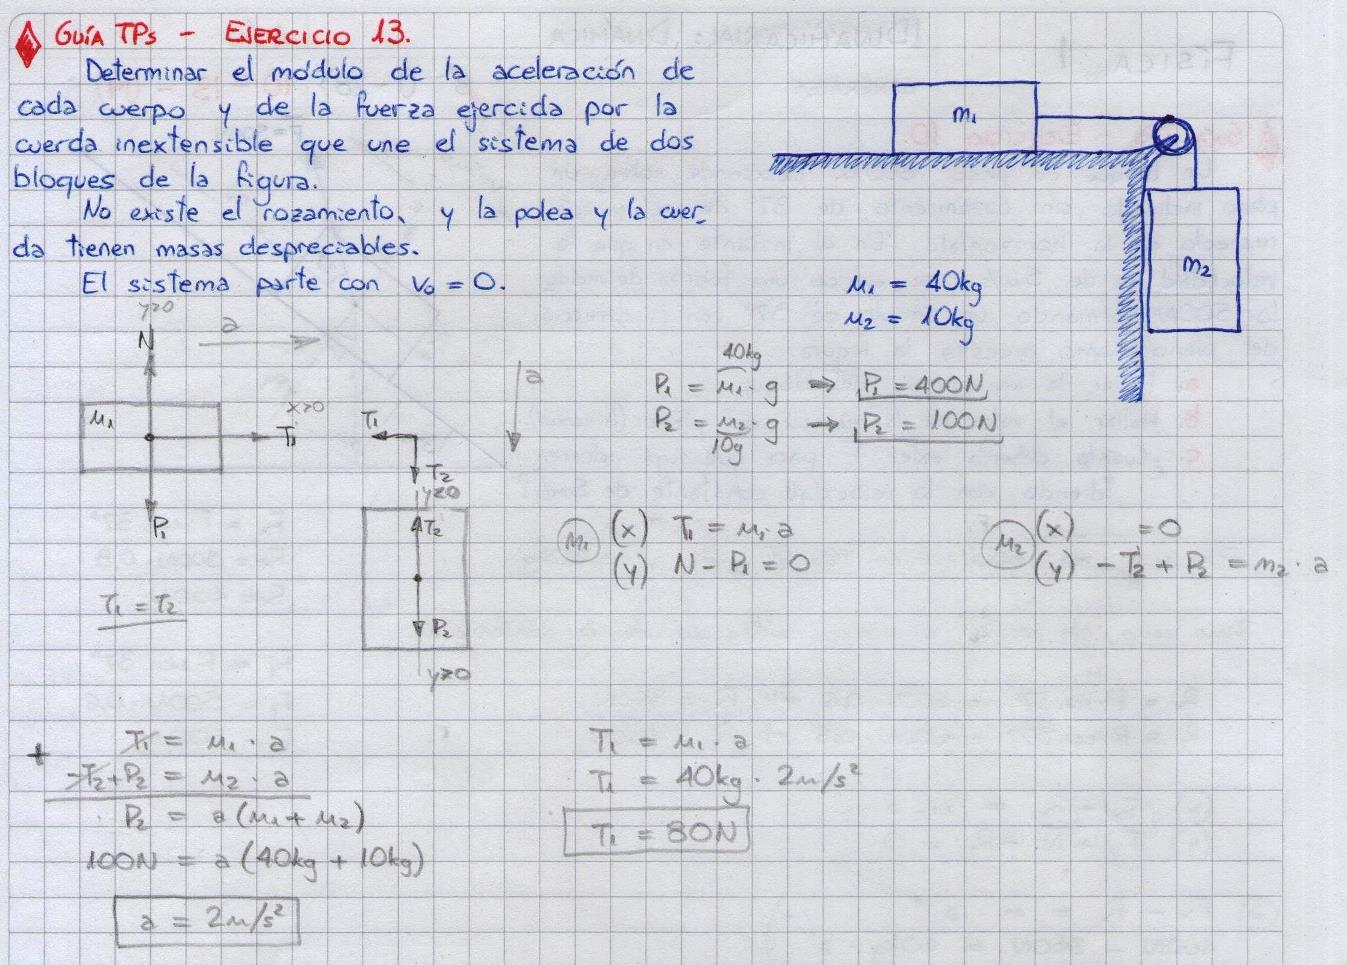 GUÍA TPs - EJERCICIO 13.
Determinar el módulo de la aceleración de
cada cuerpo y de la fuerza ejercida por la
cuerda inextensible que une el sistema de dos
bloques de la figura.
No existe el rozamiento, y la polea y la cuer_
da tienen masas despreciables.
El sistema parte con v₀ = 0.
m₁
m₂
m₁ = 40kg
m₂ = 10kg
y>0
N
a
m₁
x>0
T₁
P₁
T₁ = T₂
T₁
T₂
y>0
T₂
P₂
y>0
a
40kg
P₁ = m₁ · g → P₁ = 400N
P₂ = m₂ · g → P₂ = 100N
10g
m₁ (x) T₁ = m₁ · a
(y) N - P₁ = 0
m₂ (x) = 0
(y) - T₂ + P₂ = m₂ · a
+ T₁ = m₁ · a
-T₂+P₂ = m₂ · a
P₂ = a(m₁+ m₂)
100N = a(40kg + 10kg)
a = 2m/s²
T₁ = m₁ · a
T₁ = 40kg · 2m/s²
T₁ = 80N